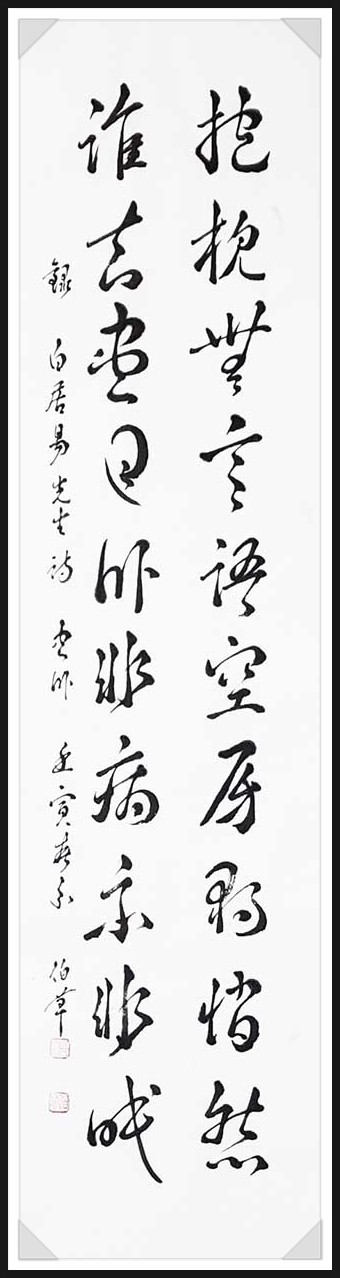 抱枕無言語空房獨悄然
誰知盡日卧非病亦非眠
錄 白居易先生詩 晝卧 壬寅春 伯